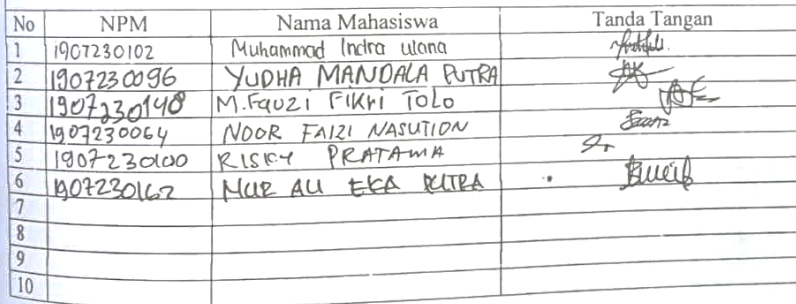 No NPM Nama Mahasiswa Tanda Tangan
1 1907230102 Muhammad Indra ulana
2 1907230096 YUDHA MANDALA PUTRA
3 1907230148 M.Fauzi Fikri Tolo
4 1907230064 NOOR FAIZI NASUTION
5 1907230100 RISKY PRATAMA
6 1907230162 NUR ALI EKA PUTRA
7
8
9
10